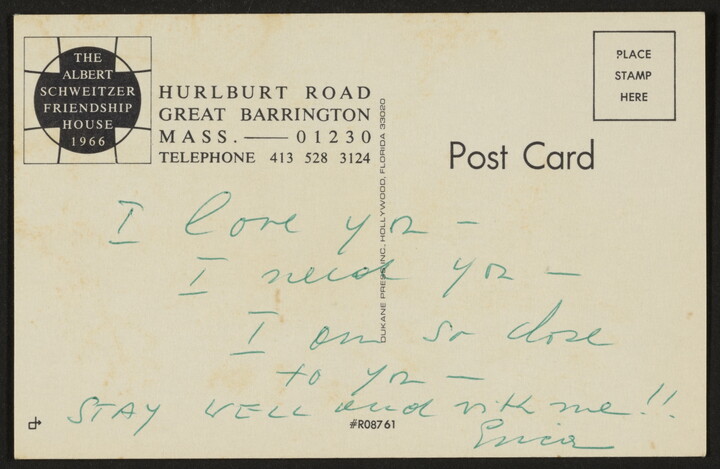 THE
ALBERT
SCHWEITZER
FRIENDSHIP
HOUSE
1966
HURLBURT ROAD
GREAT BARRINGTON
MASS. — 01230
TELEPHONE 413 528 3124
PLACE
STAMP
HERE
Post Card
DUKANE PRESS, INC. HOLLYWOOD, FLORIDA 33020
I love you –
I need you –
I am so close
to you –
STAY WELL and with me!!
Erica
#R08761